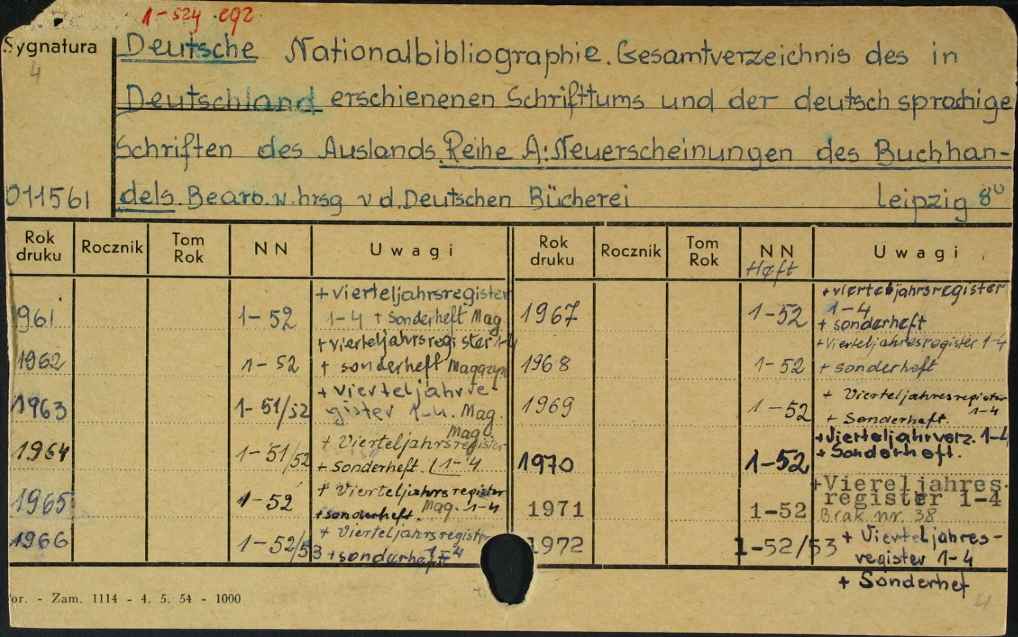 1-524 egz
Sygnatura
4
Deutsche Nationalbibliographie. Gesamtverzeichnis des in
Deutschland erschienenen Schrifttums und der deutsch sprachige
Schriften des Auslands. Reihe A: Neuerscheinungen des Buchhan-
011561
dels. Bearb. u. hrsg v d. Deutschen Bücherei Leipzig 8°
Rok druku Rocznik Tom Rok NN Uwagi
1961 1-52 + Vierteljahrsregister
1-4 + Sonderheft Mag
1962 1-52 + Vierteljahrsregister 1-4
+ sonderheft Magazyn
1963 1-51/52 + Vierteljahrre
gister 1-4. Mag.
1964 1-51/52 Mag
+ Vierteljahrsregister
+ Sonderheft. 1-4
1965 1-52 + Vierteljahrsregister
+ sonderheft. Mag. 1-4
1966 1-52/53 + Vierteljahrsregister
+ sonderheft 1-4
Rok druku Rocznik Tom Rok NN Uwagi
Heft
1967 1-52 + vierteljahrsregister
1-4
+ sonderheft
1968 1-52 + Vierteljahresregister 1-4
+ sonderheft
1969 1-52 + Vierteljahresregister
1-4
+ Sonderheft.
1970 1-52 + Vierteljahrverz. 1-4
+ Sonderheft.
1971 1-52 + Viereljahres-
register 1-4
Brak nr. 38
1972 1-52/53 + Vierteljahres-
register 1-4
+ Sonderhef
or. - Zam. 1114 - 4. 5. 54 - 1000
4